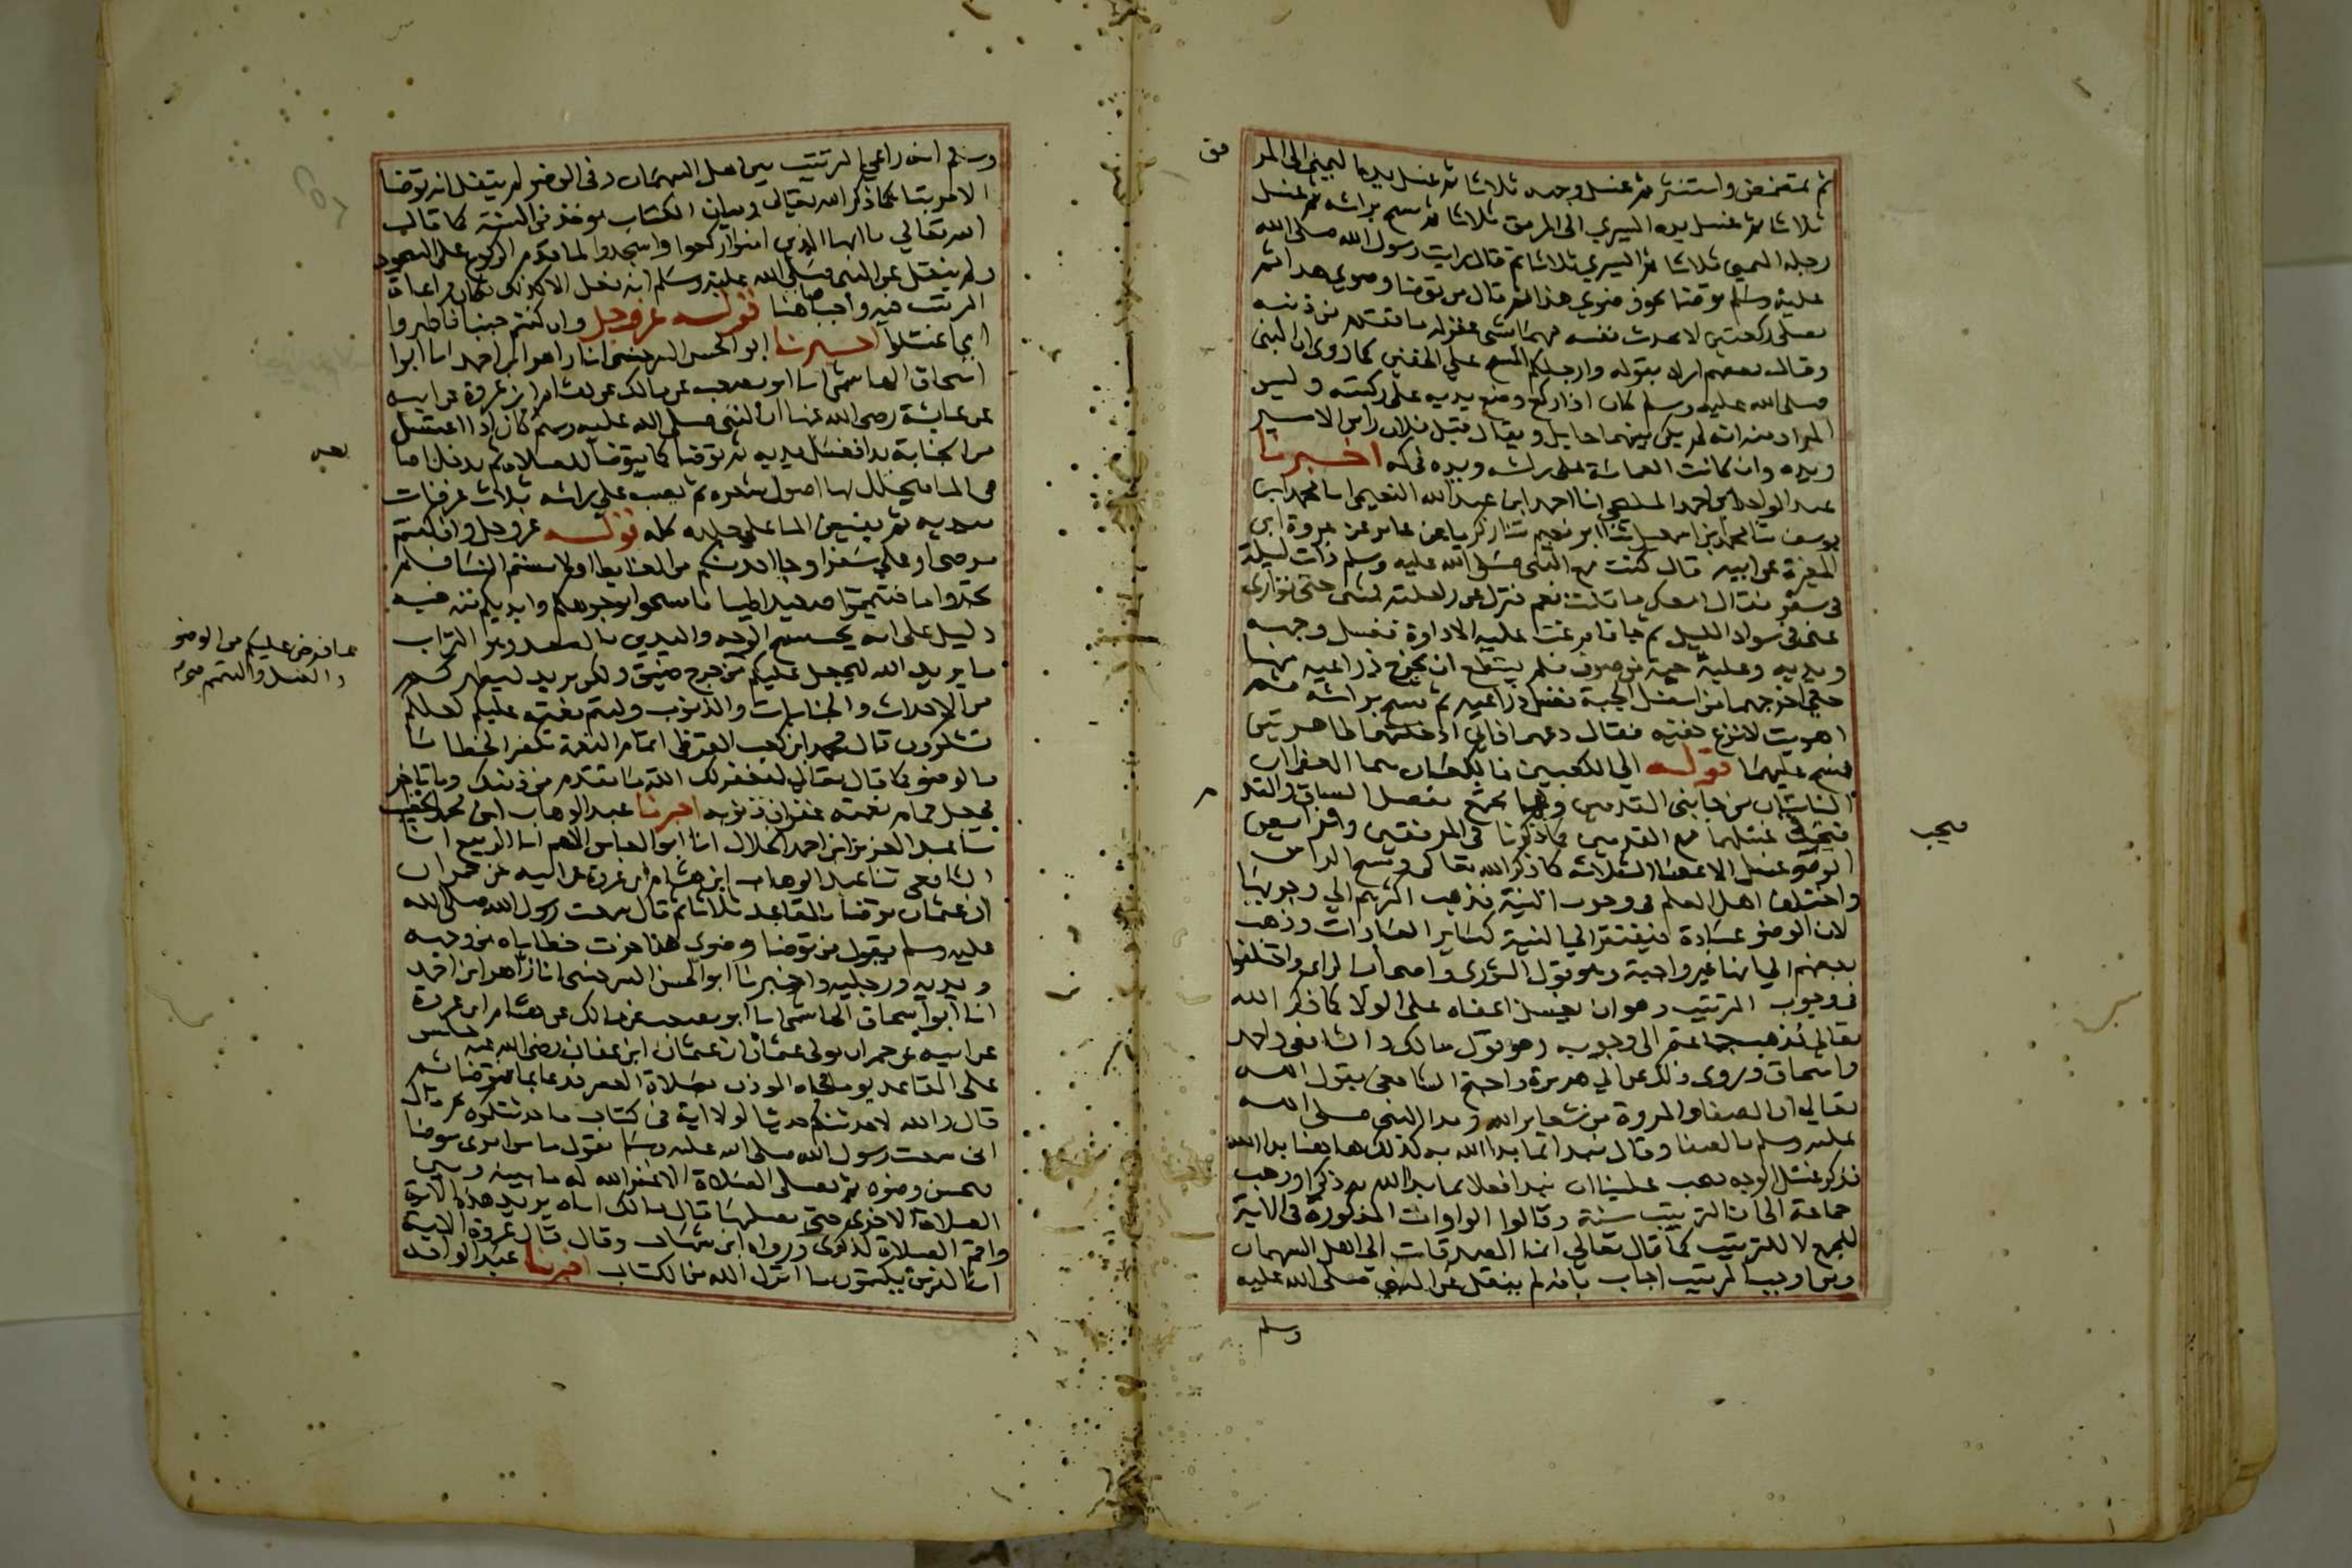 ثم تمضمض واستنثر ثم غسل وجهه ثلاثا ثم غسل يده اليمنى الى المر
فق
ثلاثا ثم غسل يده اليسري الى المرفق ثلاثا ثم مسح براسه ثم غسل
رجله اليمنى ثلاثا ثم اليسري ثلاثا ثم قال رايت رسول الله صلى الله
عليه وسلم توضا نحو وضوي هذا ثم قال من توضا وضوي هذا ثم
يصلى ركعتين لا يحدث نفسه فيهما بشى غفر له ما تقدم من ذنبه
وقال بعضهم اراد بقوله وارجلكم المسح على الخفين كما روى ان النبى
صلى الله عليه وسلم كان اذا ركع وضع يديه على ركبته وليس
المراد منه انه لم يكن بينهما حايل ويقال قبل فلان راس الامير
ويده وان كانت العمامة على راسه ويده فى كمه اخبرنا
عبد الواحد ابن احمد المليحى انا احمد ابن عبد الله النعيمى انا محمد ابن
يوسف ثنا محمد بن اسمعيل ثنا ابو نعيم ثنا زكريا عن عامر عن عروة ابن
المغيرة عن ابيه قال كنت مع النبى صلى الله عليه وسلم ذات ليلة
فى سفر فقال امعك ما قلت نعم فنزل عن راحلته فمشى حتى توارى
عنى فى سواد الليل ثم جا فافرغت عليه الاداوة فغسل وجهه
ويديه وعليه جبة من صوف فلم يستطع ان يخرج ذراعيه منها
حتى اخرجهما من اسفل الجبة فغسل ذراعيه ثم مسح براسه ثم
اهويت لانزع خفيه فقال دعهما فانى ادخلتهما طاهرتين
فمسح عليهما قوله الى الكعبين فالكعبان هما العظمان
الناتيان من جانبى القدمين وهما مجمع مفصل الساق والقد
م
فيجب غسلهما مع القدمين كما ذكرنا فى المرفقين وفرايض
فيجب
الوضو غسل الاعضا الثلاثه كما ذكر الله تعالى ومسح الراس
واختلف اهل العلم فى وجوب النية فذهب اكثرهم الى وجوبها
لان الوضو عبادة فيفتقر الى النية كساير العبادات وذهب
بعضهم الى انها غير واجبة وهو قول الثورى واصحاب الراى واختلفوا
فى وجوب الترتيب وهو ان يغسل اعضاه على الولا كما ذكر الله
تعالى فذهب جماعة الى وجوبه وهو قول مالك والشافعى واحمد
واسحاق وروى ذلك عن ابى هريرة واحتج الشافعى بقول الله
تعالى ان الصفا والمروة من شعاير الله وبدا النبى صلى الله
عليه وسلم بالصفا وقال نبدا بما بدا الله به كذلك هاهنا بدا الله
بذكر غسل الوجه يجب علينا ان نبدا فعلا بما بدا الله به ذكرا وذهب
جماعة الى ان الترتيب سنة وقالوا الواوات المذكورة فى الاية
للجمع لا للترتيب كما قال تعالى انما الصدقات الى اهل السهمان
ومن اوجب الترتيب اجاب بانه لم ينقل عن النبى صلى الله عليه
وسلم
وسلم انه راعى الترتيب بين اهل السهمان وفى الوضو لم ينقل انه توضا
الا مرتبا كما ذكر الله تعالى وبيان الكتاب يوخذ من السنة كما قال
الله تعالى يا ايها الذين امنوا اركعوا واسجدوا لما قدم الركوع على السجود
ولم ينقل عن النبى صلى الله عليه وسلم انه فعل الا كذلك فكان مراعاة
الترتيب فيه واجبا هاهنا قوله عز وجل وان كنتم جنبا فاطهروا
اى اغتسلوا اخبرنا ابو الحسن السرخسى انا زاهر ابن احمد انا ابوا
اسحاق الهاشمى انا ابو مصعب عن مالك عن هشام ابن عروة عن ابيه
عن عايشة رضى الله عنها ان النبى صلى الله عليه وسلم كان اذا اغتسل
من الجنابة بدا فغسل يديه ثم توضا كما يتوضا للصلاة ثم يدخل اصا
بعه
فى الما فيخلل بها اصول شعره ثم يصب على راسه ثلاث غرفات
بيديه ثم يفيض الما على جلده كله قوله عز وجل وان كنتم
مرضى او على سفر او جا احد منكم من الغايط او لامستم النسا فلم
تجدوا ما فتيمموا صعيدا طيبا فامسحوا بوجوهكم وايديكم منه فيه
دليل على انه يجب مسح الوجه واليدين بالصعيد وهو التراب
ما يريد الله ليجعل عليكم من حرج ضيق ولكن يريد ليطهركم
بما افترض عليكم من الوضو
والغسل والتيمم
من الاحداث والجنابات والذنوب وليتم نعمته عليكم لعلكم
تشكرون قال محمد ابن كعب القرظى اتمام النعمة تكفير الخطايا
بالوضو كما قال تعالى ليغفر لك الله ما تقدم من ذنبك وما تاخر
فجعل تمام نعمته غفران ذنوبه اخبرنا عبد الوهاب ابن محمد الخطيب
ثنا عبد العزيز ابن احمد الخلال انا ابو العباس الاصم انا الربيع انا
الشافعى ثنا عبد الوهاب ابن هشام ابن عروة عن ابيه عن حمران
ان عثمان توضا بالمقاعد ثلاثا ثم قال سمعت رسول الله صلى الله
عليه وسلم يقول من توضا وضوى هذا خرجت خطاياه من وجهه
ويديه ورجليه واخبرنا ابو الحسن السرخسى انا زاهر ابن احمد
انا ابو اسحاق الهاشمى انا ابو مصعب عن مالك عن هشام ابن عروة
عن ابيه عن حمران مولى عثمان ان عثمان ابن عفان رضى الله عنه جلس
على المقاعد يوما فجاه الموذن بصلاة العصر فدعا بما فتوضا ثم
قال والله لاحدثنكم حديثا لولا اية فى كتاب ما حدثتكموه ثم قال
انى سمعت رسول الله صلى الله عليه وسلم يقول ما من امرى يتوضا
فيحسن وضوه ثم يصلى الصلاة الا غفر الله له ما بينه وبين
الصلاة الاخرى حتى يصليها قال مالك اراه يريد هذه الاية
واقم الصلاة لذكرى ورواه ابن شهاب وقال قال عروة الاية
ان الذين يكتمون ما انزل الله من الكتاب اخبرنا عبد الواحد